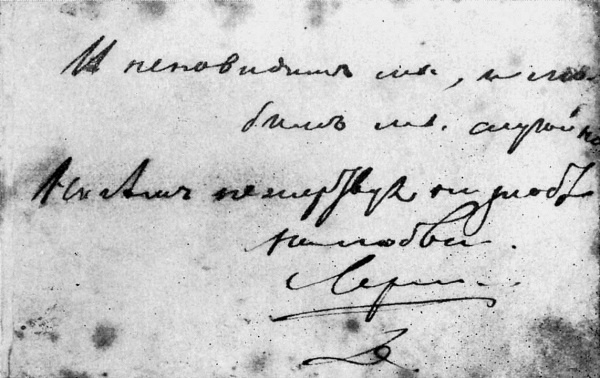 И ненавидимъ мы, и лю-
бимъ мы случайно
Ничѣмъ не жертвуя ни злобѣ
ни любви.
Лерм